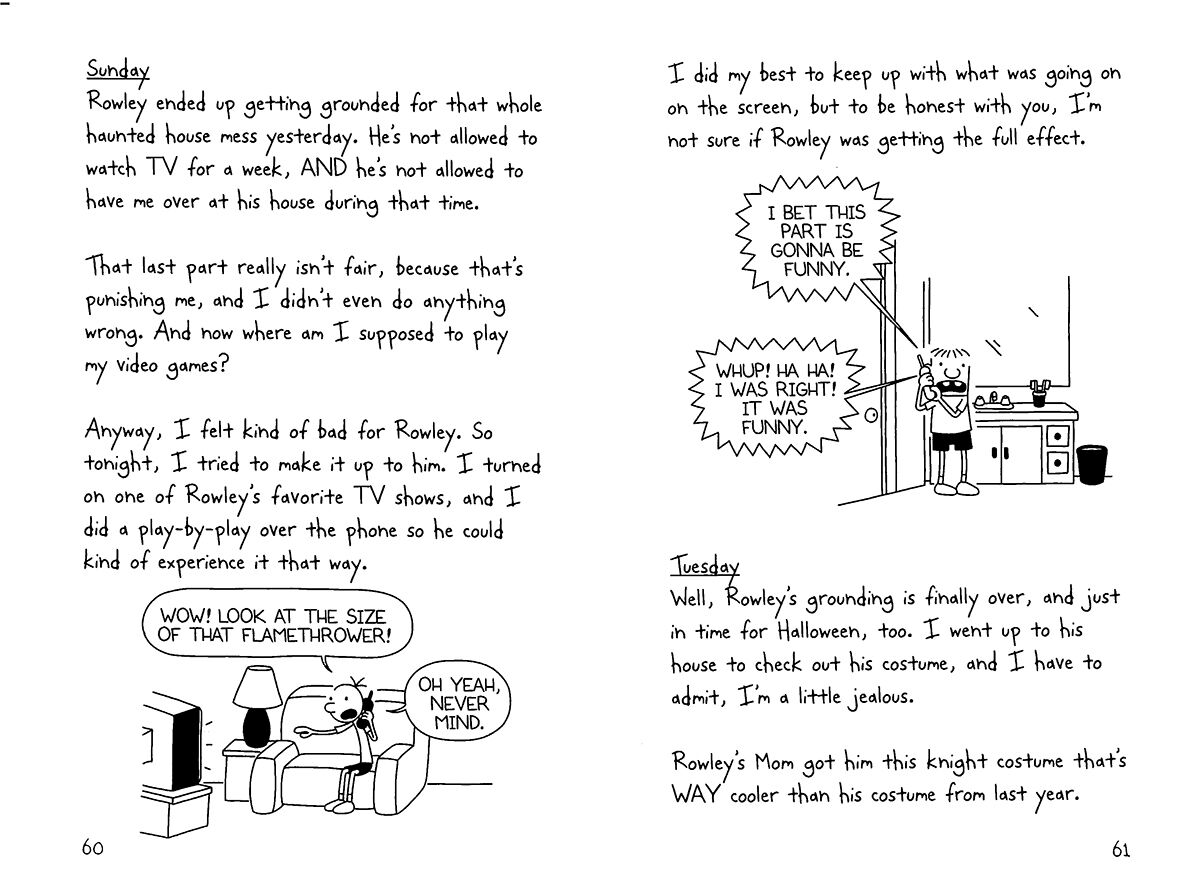 Sunday
Rowley ended up getting grounded for that whole
haunted house mess yesterday. He's not allowed to
watch TV for a week, AND he's not allowed to
have me over at his house during that time.
That last part really isn't fair, because that's
punishing me, and I didn't even do anything
wrong. And now where am I supposed to play
my video games?
Anyway, I felt kind of bad for Rowley. So
tonight, I tried to make it up to him. I turned
on one of Rowley's favorite TV shows, and I
did a play-by-play over the phone so he could
kind of experience it that way.
WOW! LOOK AT THE SIZE
OF THAT FLAMETHROWER!
OH YEAH,
NEVER
MIND.
60
I did my best to keep up with what was going on
on the screen, but to be honest with you, I'm
not sure if Rowley was getting the full effect.
I BET THIS
PART IS
GONNA BE
FUNNY.
WHUP! HA HA!
I WAS RIGHT!
IT WAS
FUNNY.
Tuesday
Well, Rowley's grounding is finally over, and just
in time for Halloween, too. I went up to his
house to check out his costume, and I have to
admit, I'm a little jealous.
Rowley's Mom got him this knight costume that's
WAY cooler than his costume from last year.
61